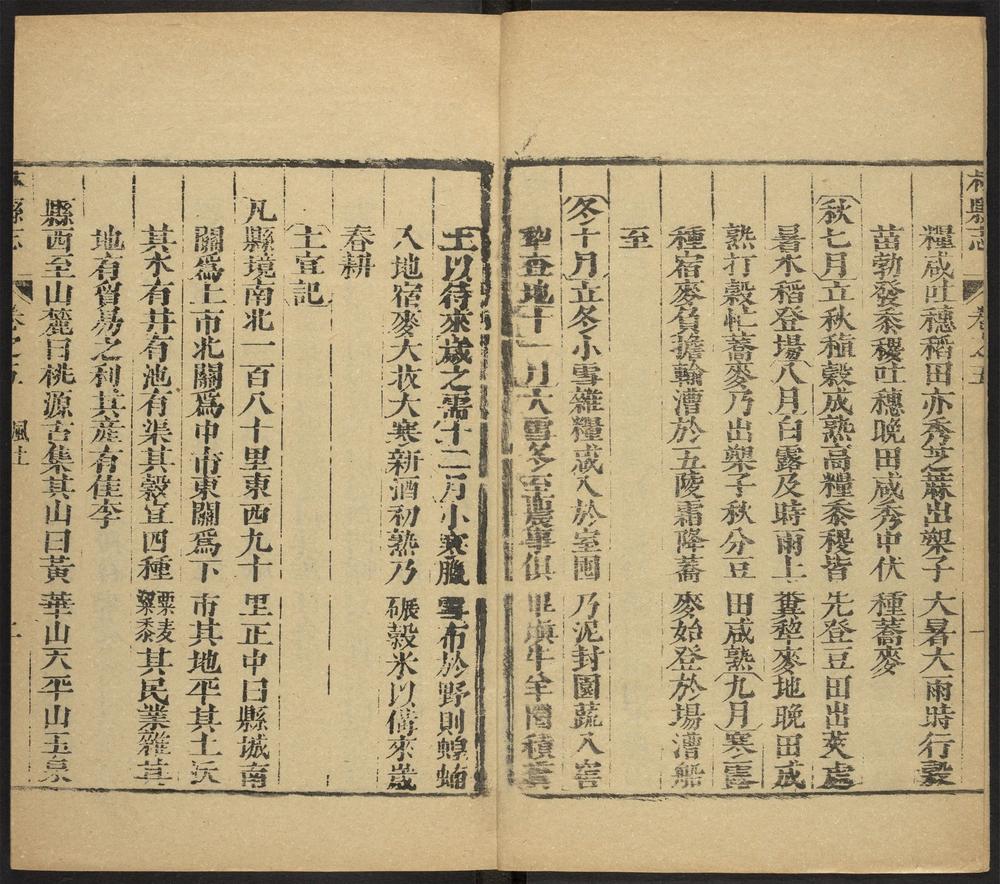 林縣志 卷之五
糧咸吐穗稻田亦秀芝蔴出架子 大暑大雨時行穀
苗勃發黍稷吐穗晚田咸秀中伏 種蕎麥
秋七月立秋稙穀成熟高糧黍稷皆 先登豆田出莢處
暑水稻登場八月白露及時雨上 糞犂麥地晚田咸
熟打穀忙蕎麥乃出架子秋分豆 田咸熟九月寒露
種宿麥負擔輸漕於五陵霜降蕎 麥始登於場漕船
至
冬十月立冬小雪雜糧咸入於室囤 乃泥封園蔬入窖
犂查地十一月大雪冬至農事俱 畢填牛羊圈積糞
土以待來歲之需十二月小寒臘 雪布於野則蝗蝻
入地宿麥大收大寒新酒初熟乃 碾穀米以俻來歲
春耕
土宜記
凡縣境南北一百八十里東西九十 里正中曰縣城南
關爲上市北關爲中市東關爲下 市其地平其土沃
其水有井有池有渠其穀宜四種 粟麦粱黍其民業雜其
地有貿易之利其産有佳李
縣西至山麓曰桃源古集其山曰黃 華山六平山玉泉
林縣志 卷之五 風土 二